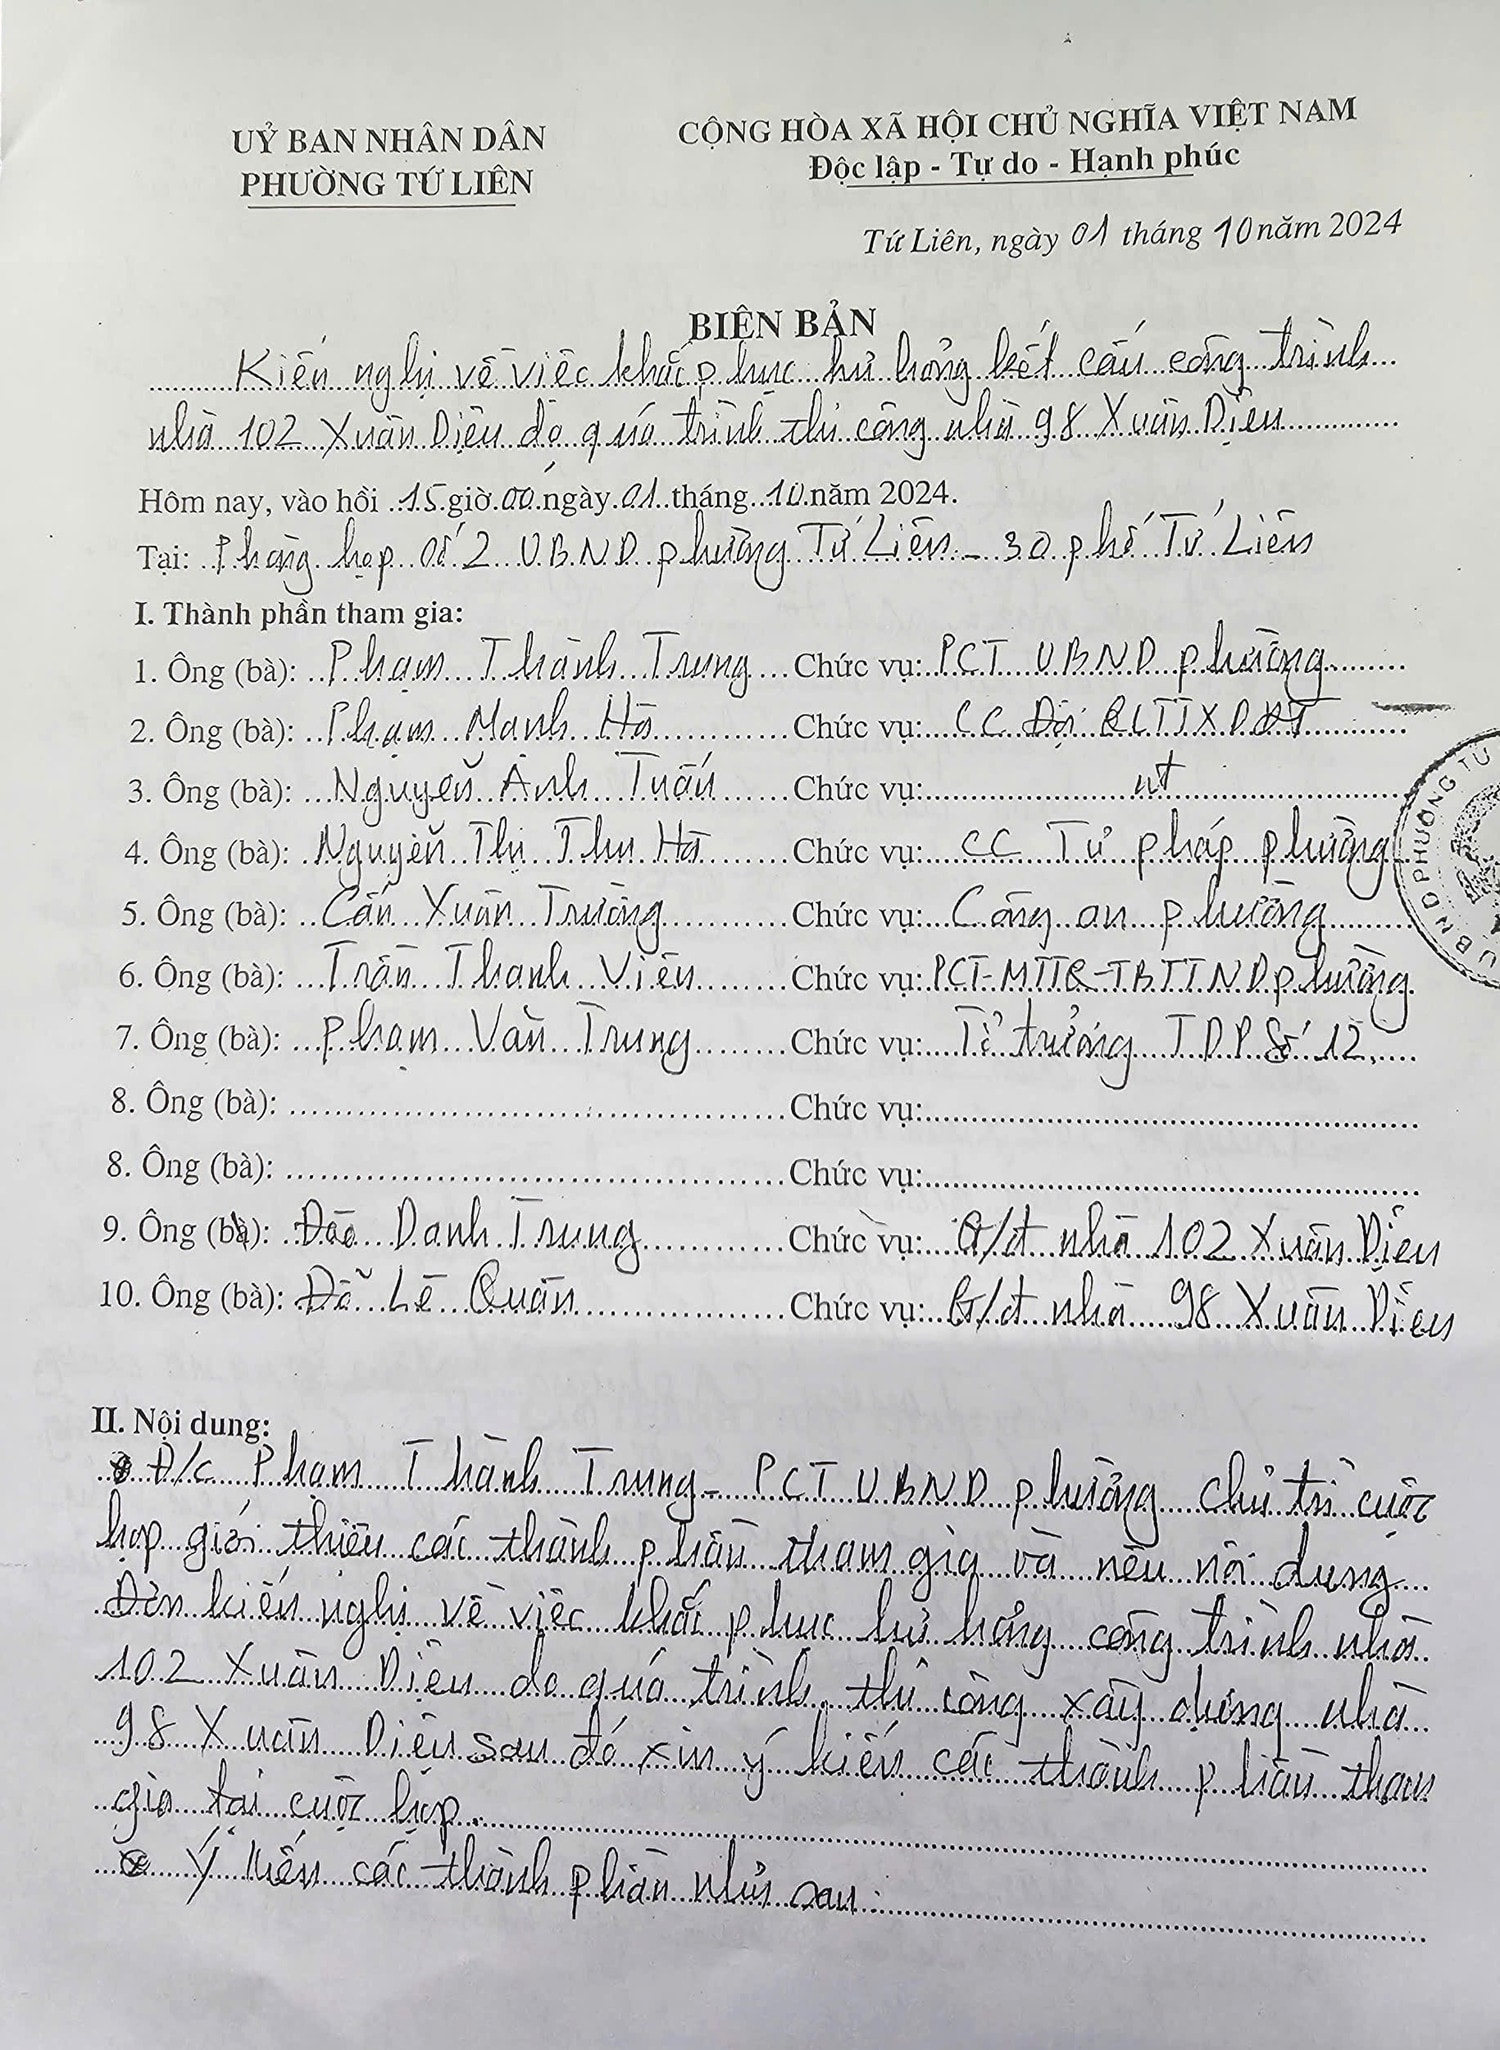 UỶ BAN NHÂN DÂN
PHƯỜNG TỨ LIÊN
CỘNG HÒA XÃ HỘI CHỦ NGHĨA VIỆT NAM
Độc lập - Tự do - Hạnh phúc
Tứ Liên, ngày 01 tháng 10 năm 2024
BIÊN BẢN
Kiến nghị về việc khắc phục hư hỏng kết cấu công trình
nhà 102 Xuân Diệu do quá trình thi công nhà 98 Xuân Diệu
Hôm nay, vào hồi 15 giờ 00 ngày 01 tháng 10 năm 2024.
Tại: Phòng họp số 2 UBND phường Tứ Liên - 30 phố Tứ Liên
I. Thành phần tham gia:
1. Ông (bà): Phạm Thành Trung Chức vụ: PCT UBND phường
2. Ông (bà): Phạm Mạnh Hà Chức vụ: CC Đội QLTTXDĐT
3. Ông (bà): Nguyễn Anh Tuấn Chức vụ: nt
4. Ông (bà): Nguyễn Thị Thu Hà Chức vụ: CC Tư pháp phường
5. Ông (bà): Cấn Xuân Trường Chức vụ: Công an phường
6. Ông (bà): Trần Thanh Viên Chức vụ: PCT-MTTQ-TBTTND phường
7. Ông (bà): Phạm Văn Trung Chức vụ: Tổ trưởng TDP Số 12
8. Ông (bà): Chức vụ:
8. Ông (bà): Chức vụ:
9. Ông (bà): Đào Danh Trung Chức vụ: G/đ nhà 102 Xuân Diệu
10. Ông (bà): Đỗ Lê Quân Chức vụ: G/đ nhà 98 Xuân Diệu
UBND PHƯỜNG TỨ
II. Nội dung:
Đ/c Phạm Thành Trung - PCT UBND phường chủ trì cuộc
họp giới thiệu các thành phần tham gia và nêu nội dung
Đơn kiến nghị về việc khắc phục hư hỏng công trình nhà
102 Xuân Diệu do quá trình thi công xây dựng nhà
98 Xuân Diệu sau đó xin ý kiến các thành phần tham
gia tại cuộc họp.
Ý kiến các thành phần như sau: